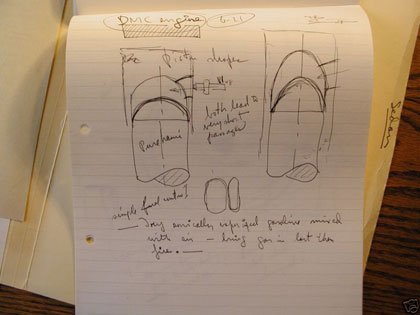 DMC engine 6-21
Piston shapes
both lead to
very short
passages
simple fuel control
— Dry sonically vaporized gasoline mixed
with air — bring gas in last then
fire. —